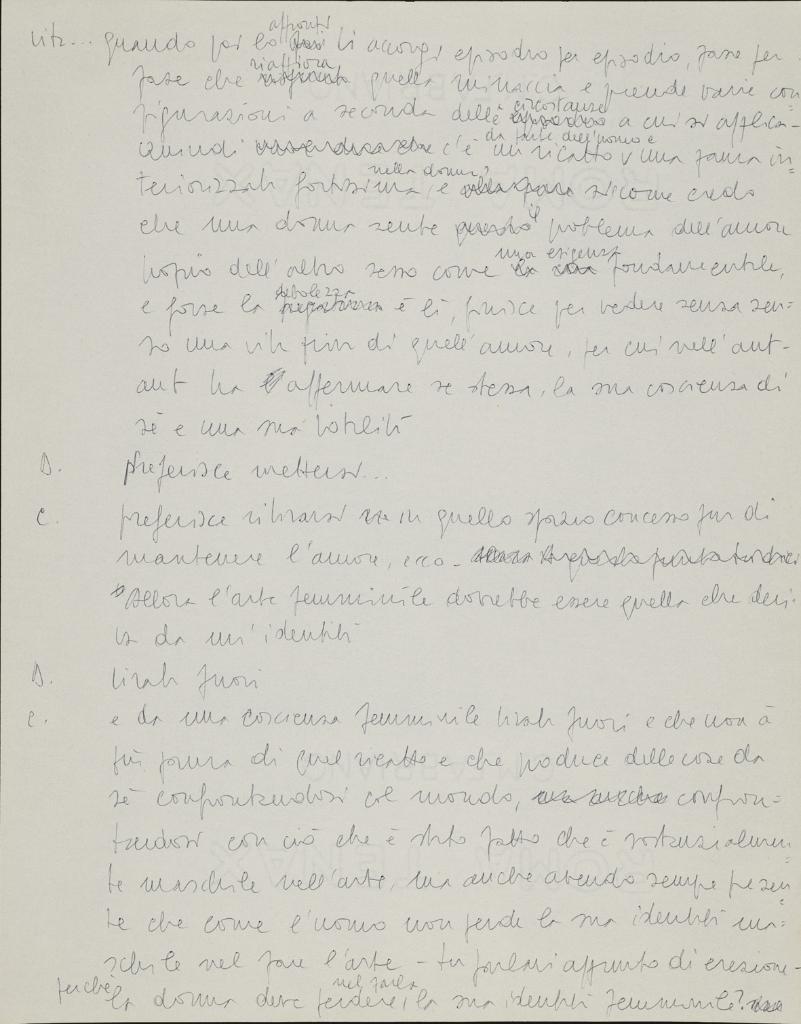 vita... quando poi lo affronti ti accorgi episodio per episodio, fase per
fase che riaffiora quella minaccia e prende varie con
figurazioni a seconda delle circostanze a cui si applica-
quindi c'è da parte dell'uomo e un ricatto, una paura in=
teriorizzata fortissima, e nella donna, siccome credo
che una donna sente il problema dell'amore
proprio dell'altro sesso come una esigenza fondamentale,
e forse la debolezza è lì, finisce per vedere senza sen-
so una vita priva di quell'amore, per cui nell'aut-
aut ha affermare se stessa, la sua coscienza di
sé e una sua totalità
D. preferisce mettersi...
C. preferisce ritirarsi in quello spazio concesso pur di
mantenere l'amore, ecco -
Allora l'arte femminile dovrebbe essere quella che deri-
va da un'identità
D. tirata fuori
C. e da una coscienza femminile tirata fuori e che non à
più paura di quel ricatto e che produce delle cose da
sé confrontandosi col mondo, confron=
tandosi con ciò che è stato fatto che è sostanzialmen=
te maschile nell'arte, ma anche avendo sempre presen=
te che come l'uomo non perde la sua identità ma=
schile nel fare l'arte - tu parlavi appunto di erezione -
perché la donna deve perdere, nel farla, la sua identità femminile?